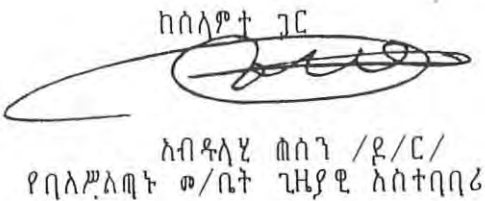 ከሰላምታ ጋር
አብዱላሂ ሐሰን /ዶ/ር/
የባለሥልጣኑ ም/ቤት ጊዜያዊ አስተባባሪ